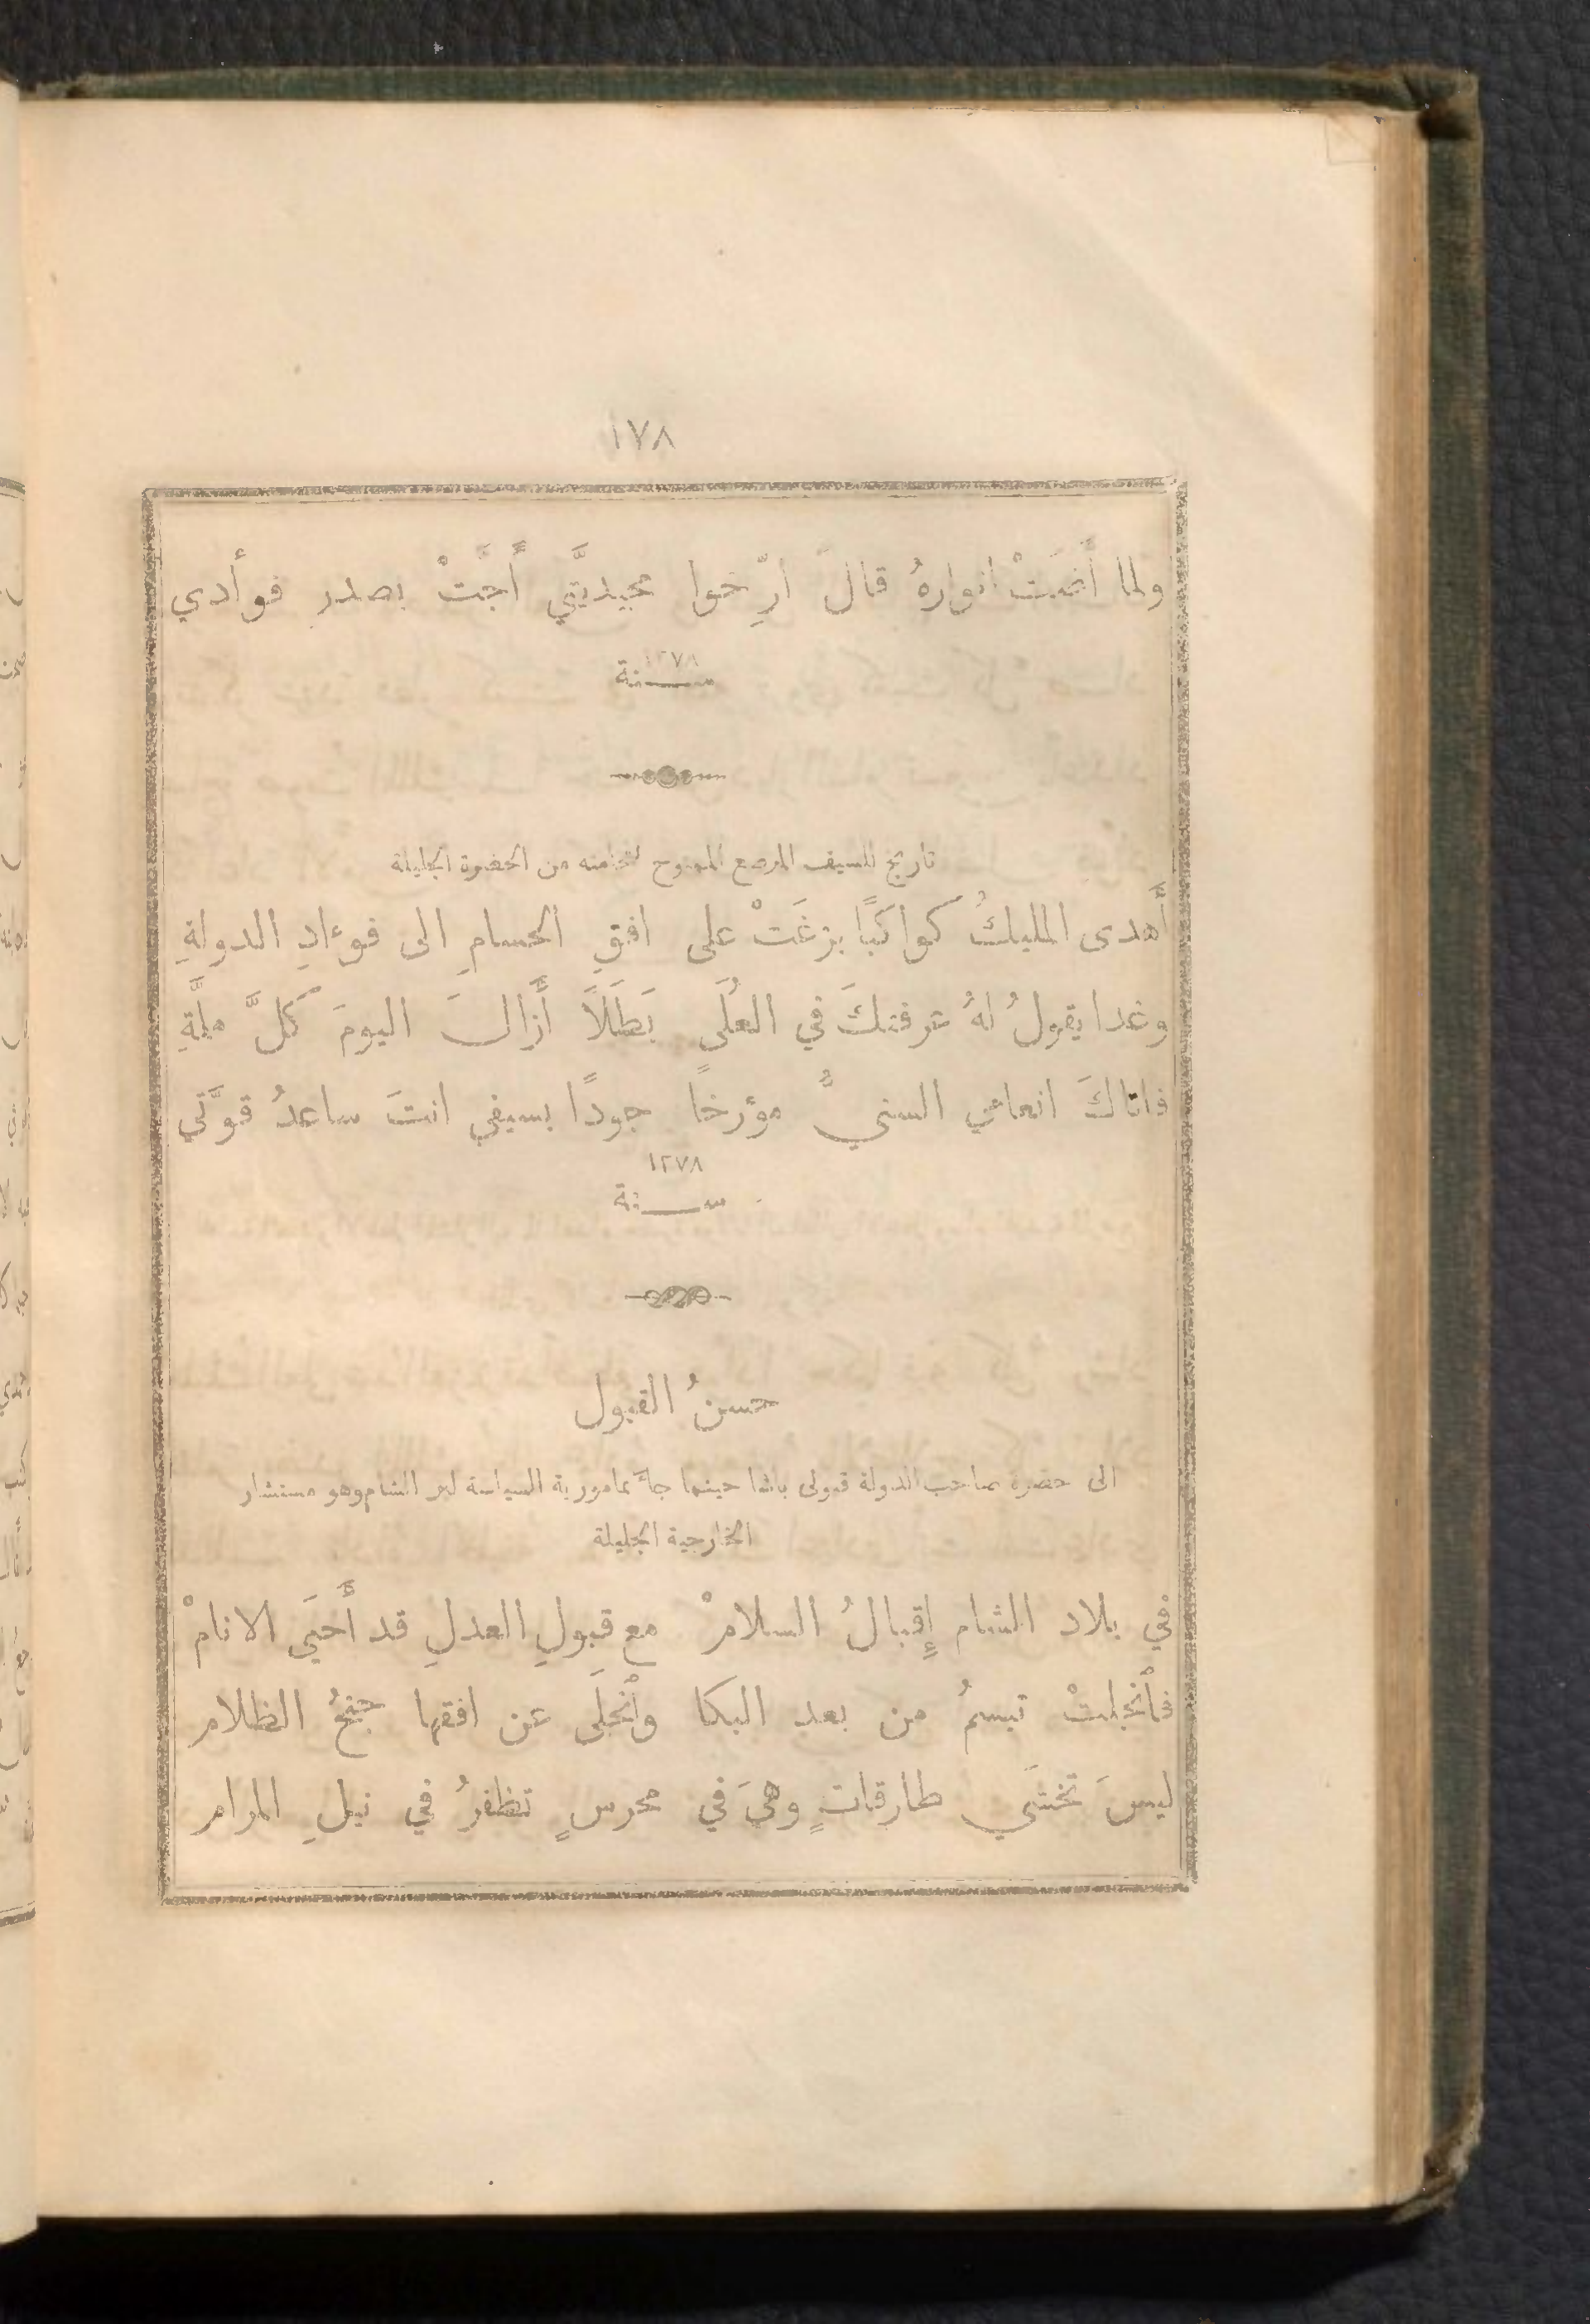 ١٧٨
ولما أَضَتْ انوارهُ قالَ ارِّخوا مجيديَّتي أُجَّتْ بصدر فوأدي
١٢٧٨
سنة
تاريخ للسيف المرصع الممنوح لفخامته من الحضرة الجليلة
أَهدى المليكُ كواكبًا بزغَتْ على افقِ الحسامِ الى فوءادِ الدولةِ
وغدا يقولُ لهُ عرفتكَ في العُلَى بَطَلًا أَزالَ اليومَ كلَّ ملَّةِ
فاتاكَ انعامي السنيُّ مؤرخًا جودًا بسيفي انتَ ساعدُ قوَّتي
١٢٧٨
سنة
حسنُ القبول
الى حضرة صاحب الدولة قبولى باشا حينما جآَ بمامورية السياسة لبر الشام وهو مستشار
الخارجية الجليلة
في بلاد الشام إِقبالُ السلامْ مع قبولِ العدلِ قد أَحيَى الانامْ
فأنجلتْ تبسمُ من بعد البكا وأنجلَى عن افقها جنحُ الظلام
ليسَ تخشَى طارقاتٍ وهيَ في محرسٍ تظفرُ في نيلِ المرام